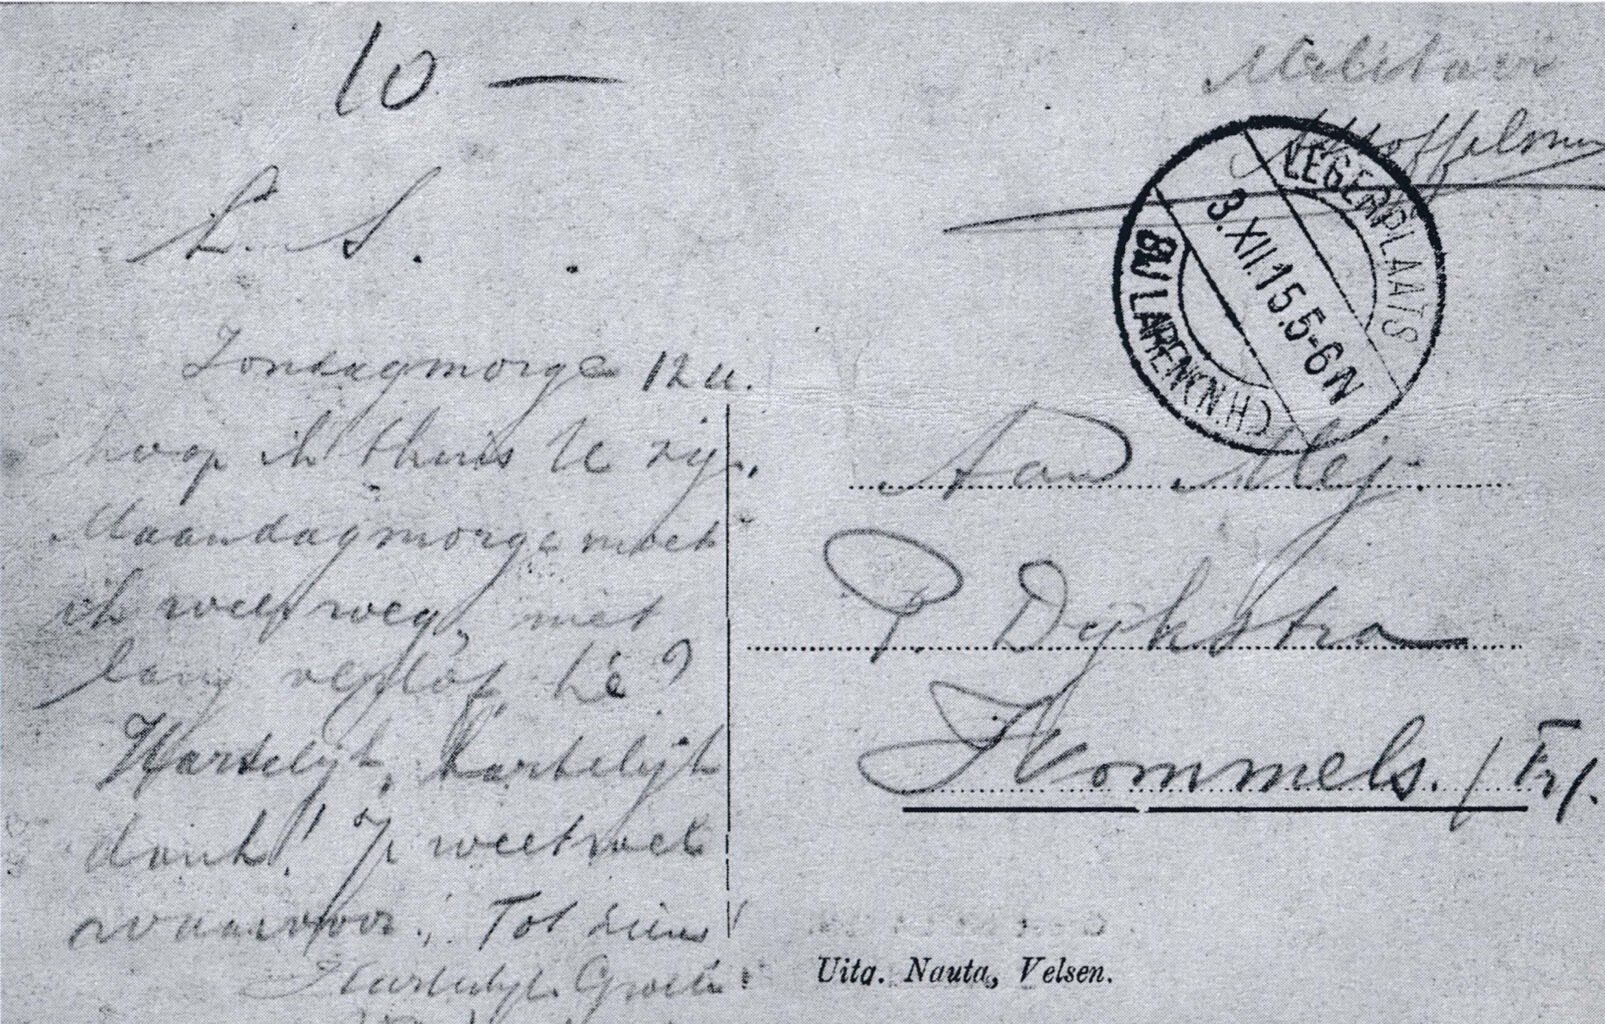 10 —
L. S.
Zondagmorge 12 u.
hoop ik thuis te zijn.
Maandagmorge moet
ik weer weg, niet
lang verlof hè?
Hartelijk, hartelijk
dank! Je weet wel
waarvoor. Tot ziens!
Hartelijk Groet
Militair
LEGERPLAATS
3.XII.15.5-6N
BIJ LAREN(N.H.)
Aan Mej.
P. Dijkstra
Wommels. (Fr).
Uitg. Nauta, Velsen.